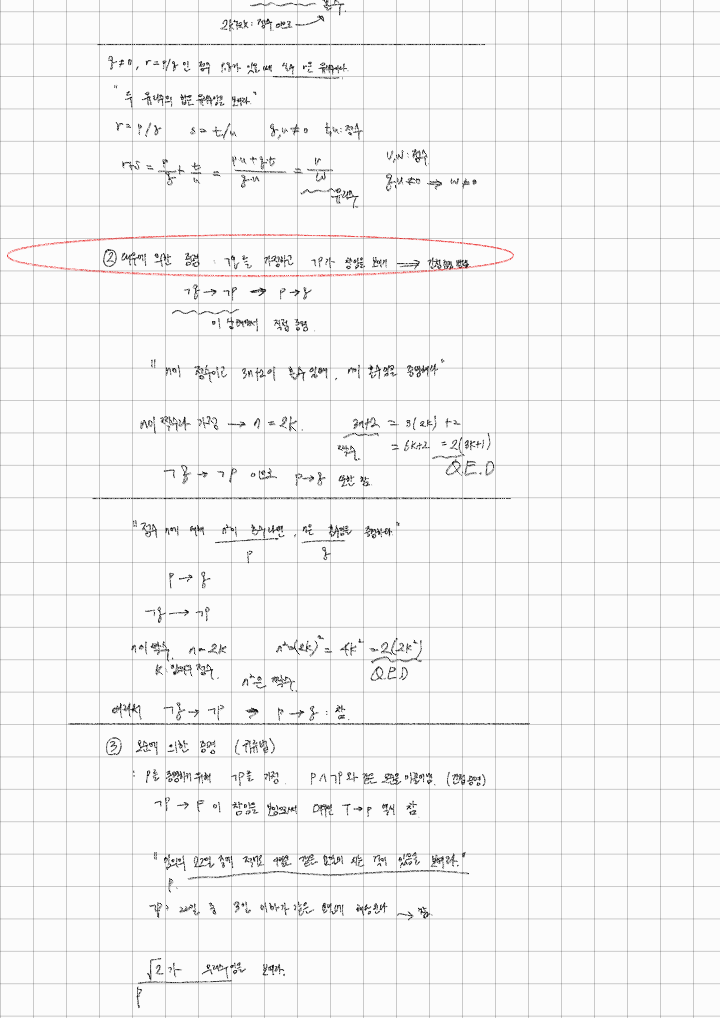 홀수.
2k²+2k : 정수 이므로
q≠0, r = p/q 인 정수 p,q가 있을 때 실수 r은 유리수이다.
"두 유리수의 합은 유리수임을 보여라"
r = p/q s = t/u q,u≠0 t,u:정수
r+s = p/q + t/u = (pu+q·t)/(q·u) = v/w v,w : 정수
q,u≠0 ⇒ w≠0
유리수
② 대우에 의한 증명 : ¬q를 가정하고 ¬p가 참임을 보이기 ⇒ 간접증명 방법
¬q → ¬p → p→q
이 상태에서 직접 증명.
"n이 정수이고 3n+2이 홀수일때, n이 홀수임을 증명해라"
n이 짝수라 가정 → n = 2k. 3n+2 = 3(2k) + 2
짝수. = 6k+2 = 2(3k+1)
¬q → ¬p 이므로 p→q 또한 참 Q.E.D
"정수 n에 대해 n²이 홀수라면, n은 홀수임을 증명하라"
p q
p → q
¬q → ¬p
n이 짝수, n = 2k n²=(2k)² = 4k² = 2(2k²)
k : 임의의 정수. n²은 짝수. Q.E.D
따라서 ¬q → ¬p → p → q : 참
③ 모순에 의한 증명 (귀류법)
: p를 증명하기 위해 ¬p를 가정. p∧¬p와 같은 모순을 이끌어냄. (간접증명)
¬p → F 이 참임을 보임으로써 대우인 T→p 역시 참
"임의의 22일 중에 적어도 4일은 같은 요일이 되는 것이 있음을 보여라."
p.
¬p : 22일 중 3일 이하가 같은 요일에 해당된다 →
√2가 무리수임을 보여라.
p